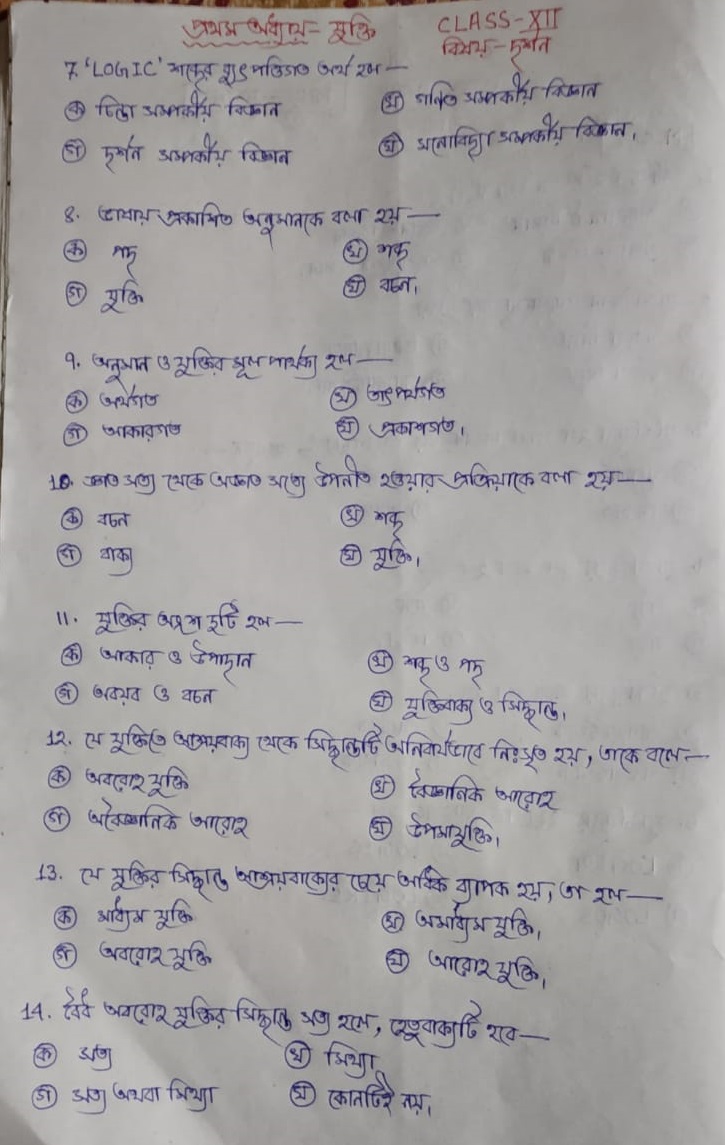 প্রথম অধ্যায় - যুক্তি
CLASS-XII
বিষয় - দর্শন
7. 'LOGIC' শব্দের ব্যুৎপত্তিগত অর্থ হল —
ক) চিন্তা সম্পর্কীয় বিজ্ঞান
খ) গণিত সম্পর্কীয় বিজ্ঞান
গ) দর্শন সম্পর্কীয় বিজ্ঞান
ঘ) মনোবিদ্যা সম্পর্কীয় বিজ্ঞান।
8. ভাষায় প্রকাশিত অনুমানকে বলা হয় —
ক) পদ
খ) শব্দ
গ) যুক্তি
ঘ) বচন।
৭. অনুমান ও যুক্তির মূল পার্থক্য হল —
ক) অর্থগত
খ) তাৎপর্যগত
গ) আকারগত
ঘ) প্রকাশগত।
10. জ্ঞাত সত্য থেকে অজ্ঞাত সত্যে উপনীত হওয়ার প্রক্রিয়াকে বলা হয় —
ক) বচন
খ) শব্দ
গ) বাক্য
ঘ) যুক্তি।
11. যুক্তির অংশ দুটি হল —
ক) আকার ও উপাদান
খ) শব্দ ও পদ
গ) অবয়ব ও বচন
ঘ) যুক্তিবাক্য ও সিদ্ধান্ত।
12. যে যুক্তিতে আশ্রয়বাক্য থেকে সিদ্ধান্তটি অনিবার্যভাবে নিঃসৃত হয়, তাকে বলে —
ক) অবরোহ যুক্তি
খ) বৈজ্ঞানিক আরোহ
গ) অবৈজ্ঞানিক আরোহ
ঘ) উপমাযুক্তি।
13. যে যুক্তির সিদ্ধান্ত আশ্রয়বাক্যের চেয়ে অধিক ব্যাপক হয়, তা হল —
ক) মাধ্যম যুক্তি
খ) অমাধ্যম যুক্তি।
গ) অবরোহ যুক্তি
ঘ) আরোহ যুক্তি।
14. বৈধ অবরোহ যুক্তির সিদ্ধান্ত সত্য হলে, হেতুবাক্যটি হবে —
ক) সত্য
খ) মিথ্যা
গ) সত্য অথবা মিথ্যা
ঘ) কোনটিই নয়।